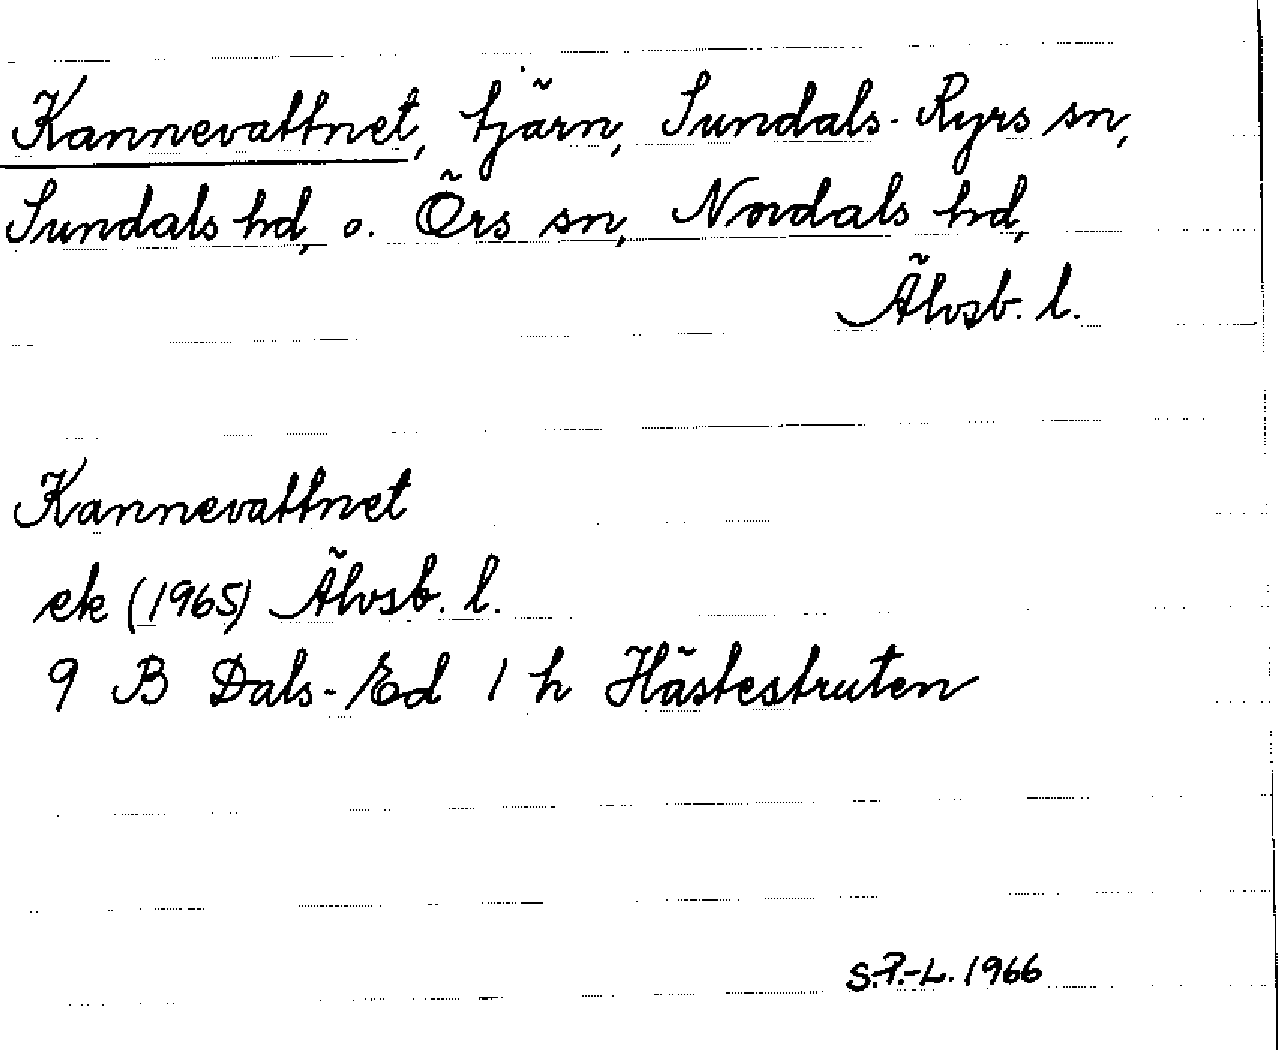 Kannevattnet, tjärn, Sundals-Ryrs sn,
Sundals hd, o. Örs sn, Nordals hd,
Älvsb. l.
Kannevattnet
ek (1965) Älvsb. l.
9 B Dals-Ed 1 h Hästestruten
S.P.-L. 1966